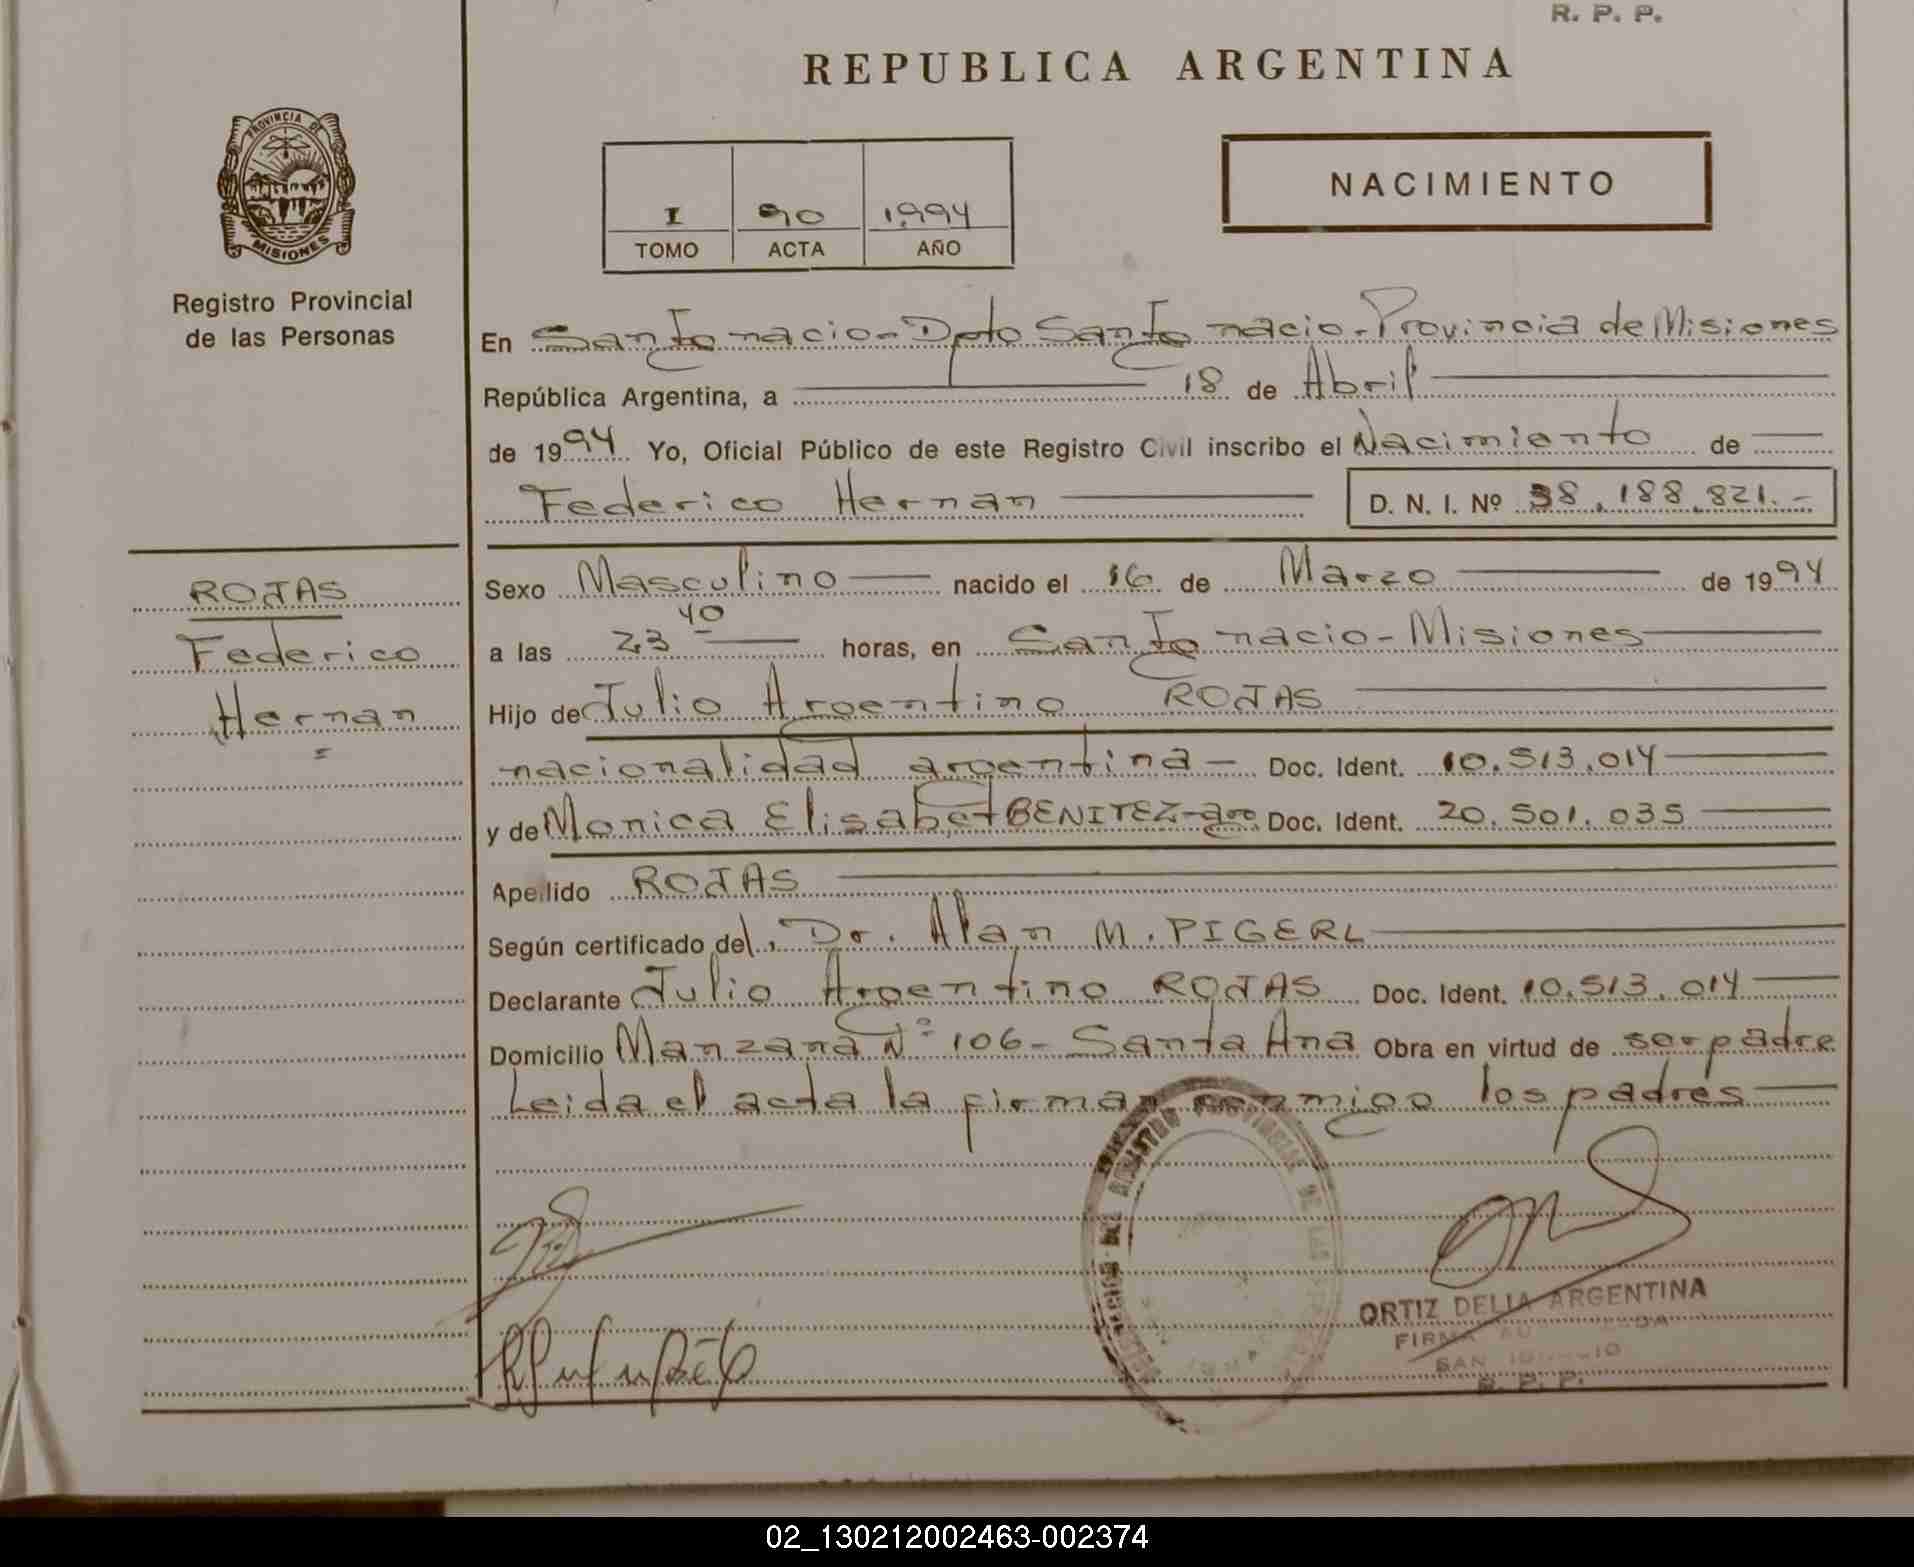 R. P. P.
REPUBLICA ARGENTINA
PROVINCIA DE
MISIONES
Registro Provincial
de las Personas
I 90 1994
TOMO ACTA AÑO
NACIMIENTO
En San Ignacio - Dpto San Ignacio - Provincia de Misiones
República Argentina, a 18 de Abril
de 1994 Yo, Oficial Público de este Registro Civil inscribo el Nacimiento de
Federico Hernan D. N. I. Nº 38.188.821.-
ROJAS
Federico
Hernan
Sexo Masculino nacido el 16 de Marzo de 1994
a las 23 40 horas, en San Ignacio - Misiones
Hijo de Julio Argentino ROJAS
nacionalidad argentina - Doc. Ident. 10.513.014
y de Monica Elisabet BENITEZ - arg. Doc. Ident. 20.501.035
Apellido ROJAS
Según certificado del Dr. Alan M. PIGERL
Declarante Julio Argentino ROJAS Doc. Ident. 10.513.014
Domicilio Manzana Nº 106 - Santa Ana Obra en virtud de ser padre
Leida el acta la firman conmigo los padres
REGISTRO PROVINCIAL DE LAS
ORTIZ DELIA ARGENTINA
FIRMA
SAN IGNACIO
R. P. P.
02_130212002463-002374